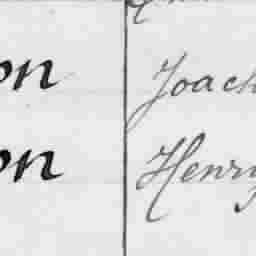 on Joach
on Henry